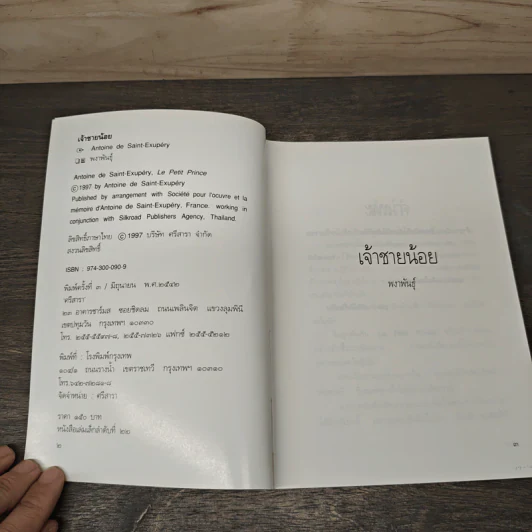 เจ้าชายน้อย
Antoine de Saint-Exupéry
พงาพันธุ์
Antoine de Saint-Exupéry, Le Petit Prince
©1997 by Antoine de Saint-Exupéry
Published by arrangement with Société pour l'oeuvre et la
mémoire d'Antoine de Saint-Exupéry, France. working in
conjunction with Silkroad Publishers Agency, Thailand.
ลิขสิทธิ์ภาษาไทย ©1997 บริษัท ศรีสารา จำกัด
สงวนลิขสิทธิ์
ISBN : 974-300-090-9
พิมพ์ครั้งที่ ๓ / มิถุนายน พ.ศ.๒๕๔๒
ศรีสารา
๒๓ อาคารชาร์มส ซอยชิดลม ถนนเพลินจิต แขวงลุมพินี
เขตปทุมวัน กรุงเทพฯ ๑๐๓๓๐
โทร. แฟกซ์
พิมพ์ที่ : โรงพิมพ์กรุงเทพ
ถนนรางน้ำ เขตราชเทวี กรุงเทพฯ ๑๐๓๑๐
โทร.
จัดจำหน่าย : ศรีสารา
ราคา ๑๕๐ บาท
หนังสือเล่มเล็กลำดับที่ ๒๒
๒
เจ้าชายน้อย
พงาพันธุ์
๓